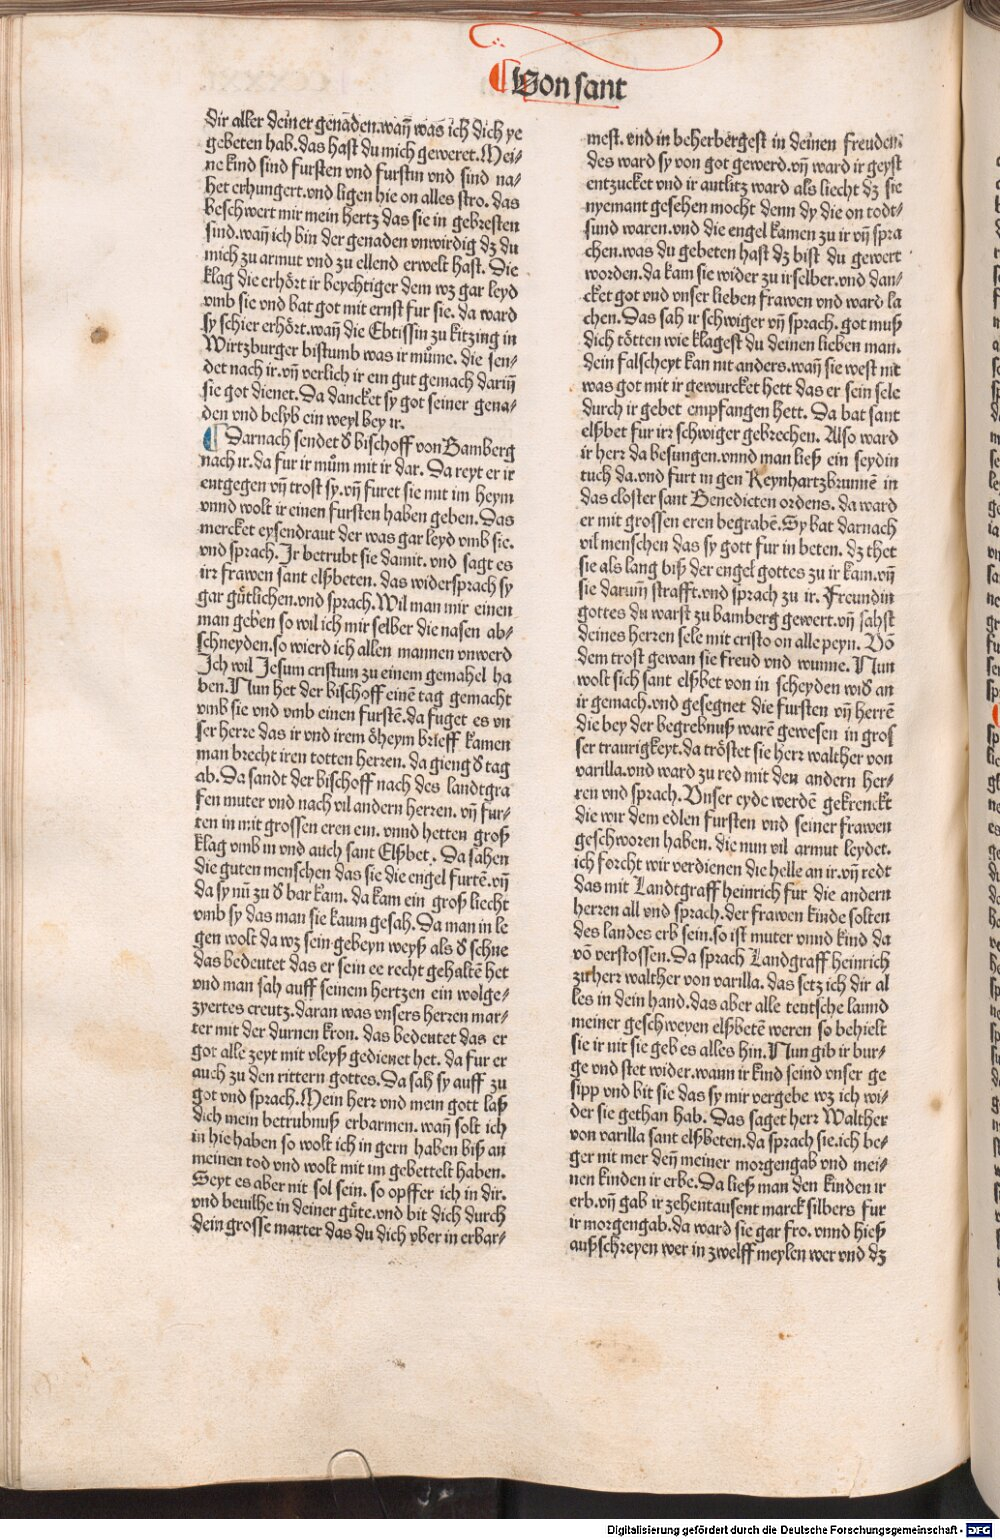 Von sant
dir aller deiner genaden.wañ was ich dich ye
gebeten hab.das hast du mich geweret.Mei⸗
ne kind sind fursten vnd furstin vnd sind na⸗
het erhungert.vnd ligen hie on alles stro. das
beschwert mir mein hertz das sie in gebresten
sind.wañ ich bin der genaden vnwirdig dz du
mich zu armut vnd zu ellend erwelt hast. Die
klag die erhört ir beychtiger dem wz gar leyd
vmb sie vnd bat got mit ernst fur sie. da ward
sy schier erhört.wañ die Ebtissin zu kitzing in
Wirtzburger bistumb was ir můme. die sen⸗
det nach ir.vñ verlich ir ein gut gemach dariñ
sie got dienet.Da dancket sy got seiner gena⸗
den vnd belyb ein weyl bey ir.
Darnach sendet ð bischoff von Bamberg
nach ir.da fur ir mům mit ir dar. Da reyt er ir
entgegen vñ trost sy.vñ furet sie mit im heym
vnnd wolt ir einen fursten haben geben. Das
mercket eysendraut der was gar leyd vmb sie.
vnd sprach.Ir betrubt sie damit. vnd sagt es
irr frawen sant elßbeten. das widersprach sy
gar gůtlichen.vnd sprach.Wil man mir einen
man geben so wil ich mir selber die nasen ab⸗
schneyden.so wierd ich allen mannen vnwerd
Ich wil Jesum cristum zu einem gemahel ha
ben.Nun het der bischoff einē tag gemacht
vmb sie vnd vmb einen furstē.da fuget es vn
ser herre das ir vnd irem öheym brieff kamen
man brecht iren totten herren. da gieng ð tag
ab. Da sandt der bischoff nach des landtgra
fen muter vnd nach vil andern herren. vñ fur⸗
ten in mit grossen eren ein. vnnd hetten groß
klag vmb in vnd auch sant Elßbet. Da sahen
die guten menschen das sie die engel furtē.vñ
da sy nū zu ð bar kam. da kam ein groß liecht
vmb sy das man sie kaum gesah. Da man in le
gen wolt da wz sein gebeyn weyß als ð schne
das bedeutet das er sein ee recht gehaltē het
vnd man sah auff seinem hertzen ein wolge⸗
zyertes creutz.daran was vnsers herren mar⸗
ter mit der durnen kron. das bedeutet das er
got alle zeyt mit vleyß gedienet het. da fur er
auch zu den rittern gottes. Da sah sy auff zu
got vnd sprach.Mein herr vnd mein gott laß
dich mein betrubnuß erbarmen. wañ solt ich
in hie haben so wolt ich in gern haben biß an
meinen tod vnd wolt mit im gebettelt haben.
Seyt es aber nit sol sein. so opffer ich in dir.
vnd beuilhe in deiner gůte.vnd bit dich durch
dein grosse marter das du dich vber in erbar⸗
mest. vnd in beherbergest in deinen freuden.
des ward sy von got gewerd.vñ ward ir geyst
entzucket vnd ir antlitz ward als liecht dz sie
nyemant gesehen mocht denn dy die on todt⸗
sund waren.vnd die engel kamen zu ir vñ spra
chen.was du gebeten hast dz bist du gewert
worden.da kam sie wider zu ir selber.vnd dan⸗
cket got vnd vnser lieben frawen vnd ward la
chen. Das sah ir schwiger vñ sprach. got muß
dich tötten wie klagest du deinen lieben man.
dein falscheyt kan nit anders.wañ sie west nit
was got mit ir gewurcket hett das er sein sele
durch ir gebet empfangen hett. Da bat sant
elßbet fur irr schwiger gebrechen. Also ward
ir herr da besungen.vnnd man ließ ein seydin
tuch da.vnd furt in gen Reynhartzbrunnē in
das closter sant Benedicten ordens. da ward
er mit grossen eren begrabē.Sy bat darnach
vil menschen das sy gott fur in beten. dz thet
sie als lang biß der engel gottes zu ir kam.vñ
sie darum̄ strafft.vnd sprach zu ir. Freundin
gottes du warst zu bamberg gewert.vñ sahst
deines herren sele mit cristo on alle peyn. Vō
dem trost gewan sie freud vnd wunne. Nun
wolt sich sant elßbet von in scheyden wið an
ir gemach.vnd gesegnet die fursten vñ herrē
die bey der begrebnuß warē gewesen in gros
ser traurigkeyt.da tröstet sie herr walther von
varilla.vnd ward zu red mit den andern her⸗
ren vnd sprach. Vnser eyde werdē gekrenckt
die wir dem edlen fursten vnd seiner frawen
geschworen haben. die nun vil armut leydet.
ich forcht wir verdienen die helle an ir.vñ redt
das mit Landtgraff heinrich fur die andern
herren all vnd sprach.der frawen kinde solten
des landes erb sein.so ist muter vnnd kind da
vō verstossen. Da sprach Landgraff heinrich
zu herr walther von varilla. das setz ich dir al
les in dein hand.das aber alle teutsche lannd
meiner geschweyen elßbetē weren so behielt
sie ir nit sie geb es alles hin. Nun gib ir bur⸗
ge vnd stet wider.wann ir kind seind vnser ge
sipp vnd bit sie das sy mir vergebe wz ich wi⸗
der sie gethan hab. Das saget herr Walther
von varilla sant elßbeten.da sprach sie.ich be⸗
ger nit mer den̄ meiner morgengab vnd mei⸗
nen kinden ir erbe.Da ließ man den kinden ir
erb.vñ gab ir zehentausent marck silbers fur
ir morgengab.da ward sie gar fro. vnnd hieß
außschreyen wer in zwelff meylen wer vnd dz
Digitalisierung gefördert durch die Deutsche Forschungsgemeinschaft - DFG